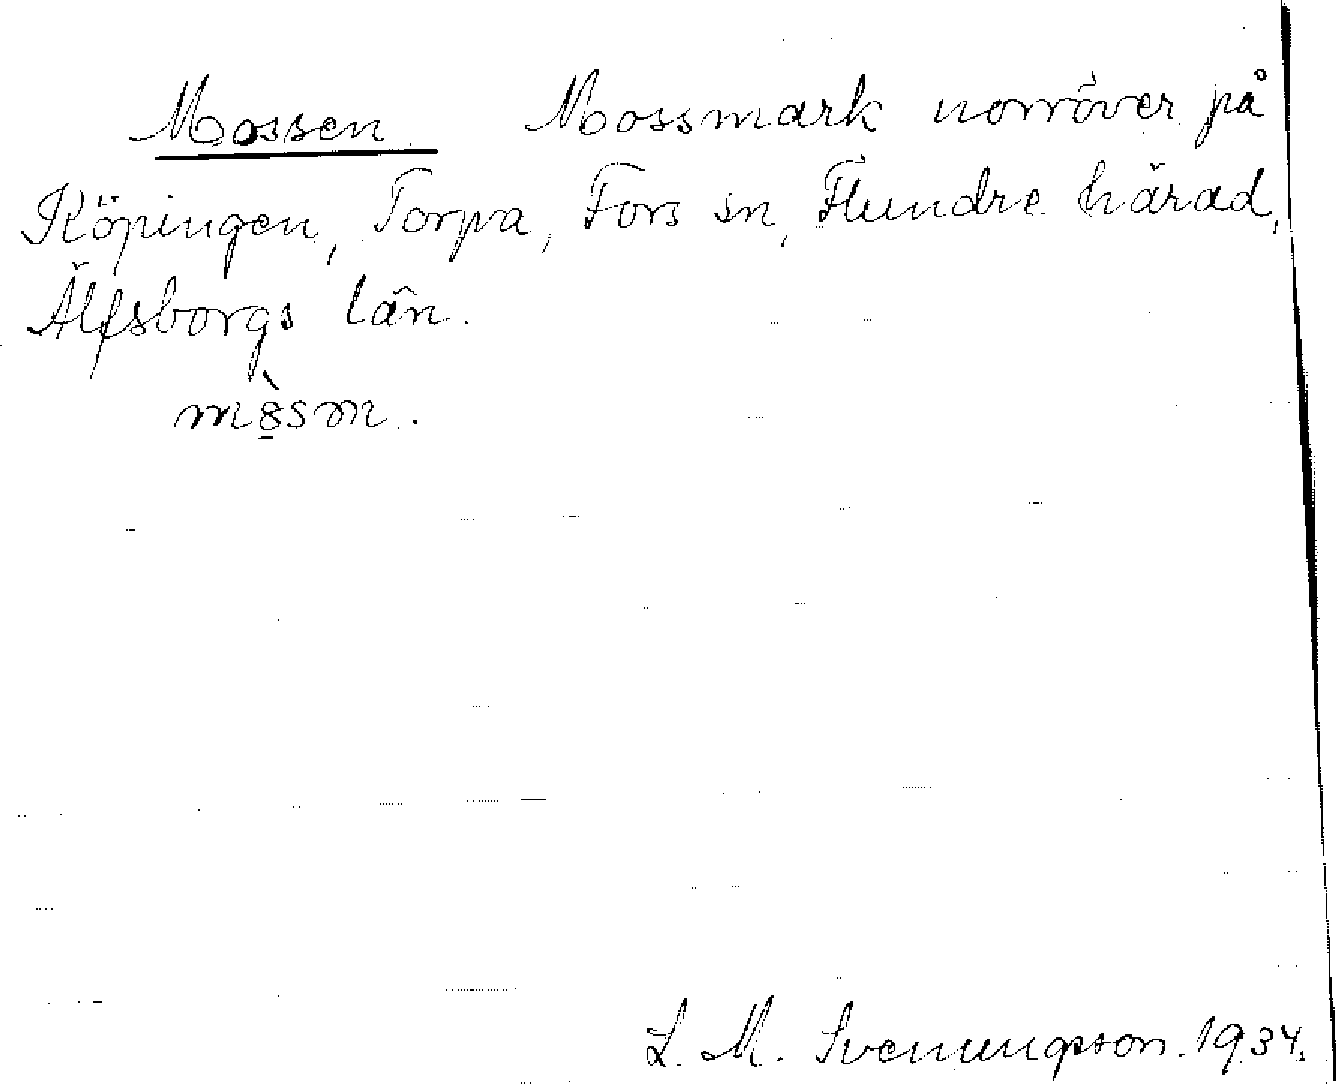 Mossen. Mossmark norröver på
Köpingen, Torpa, Fors sn, Flundre härad,
Älfsborgs län.
L. M. Svenungsson. 1934.